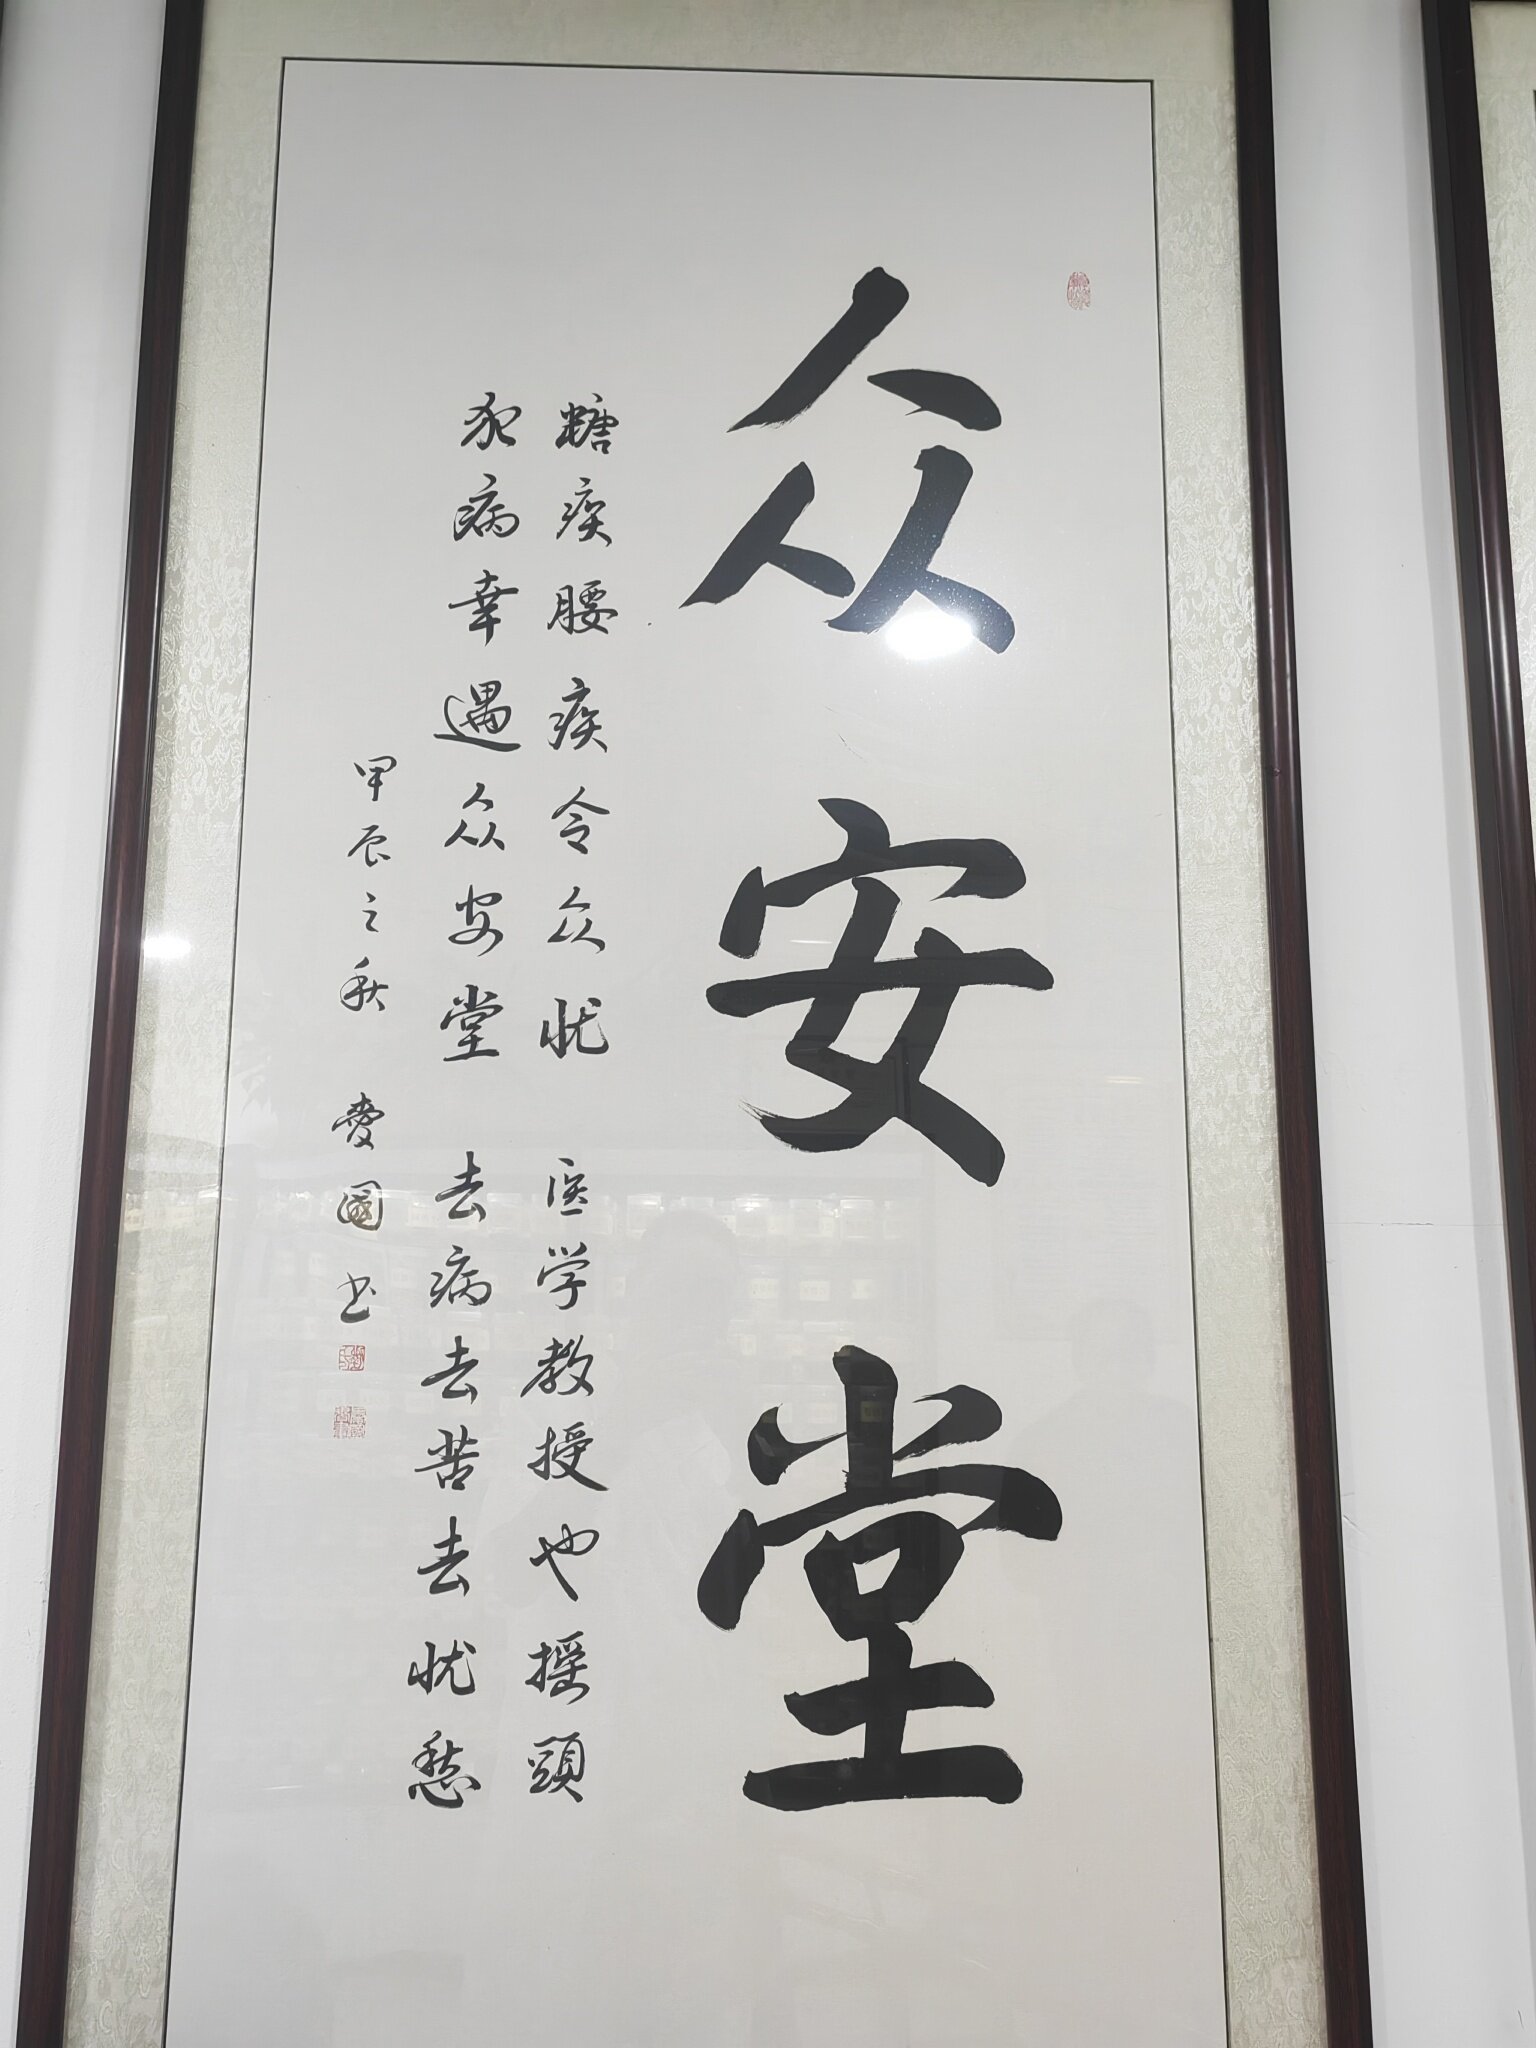 众安堂
糖疾腰疾令众忧 医学教授也摇頭
犯病幸遇众安堂 去病去苦去忧愁
甲辰之秋 爱國书